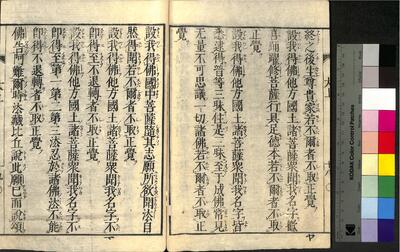 終之後生尊貴家若不爾者不取正覺
設我得佛他方國土諸菩薩衆聞我名字歡
喜踊躍修菩薩行具足德本若不爾者不取
正覺
設我得佛他方國土諸菩薩衆聞我名字皆
悉逮得普等三昧住是三昧至于成佛常見
无量不可思議一切諸佛若不爾者不取正
覺
設我得佛國中菩薩隨其志願所欲聞法自
然得聞若不爾者不取正覺
設我得佛他方國土諸菩薩衆聞我名字不
即得至不退轉者不取正覺
設我得佛他方國土諸菩薩衆聞我名字不
即得至第一第二第三法忍於諸佛法不能
即得不退轉者不取正覺
佛告阿難爾時法藏比丘說此願已而說頌
KODAK Color Control Patches